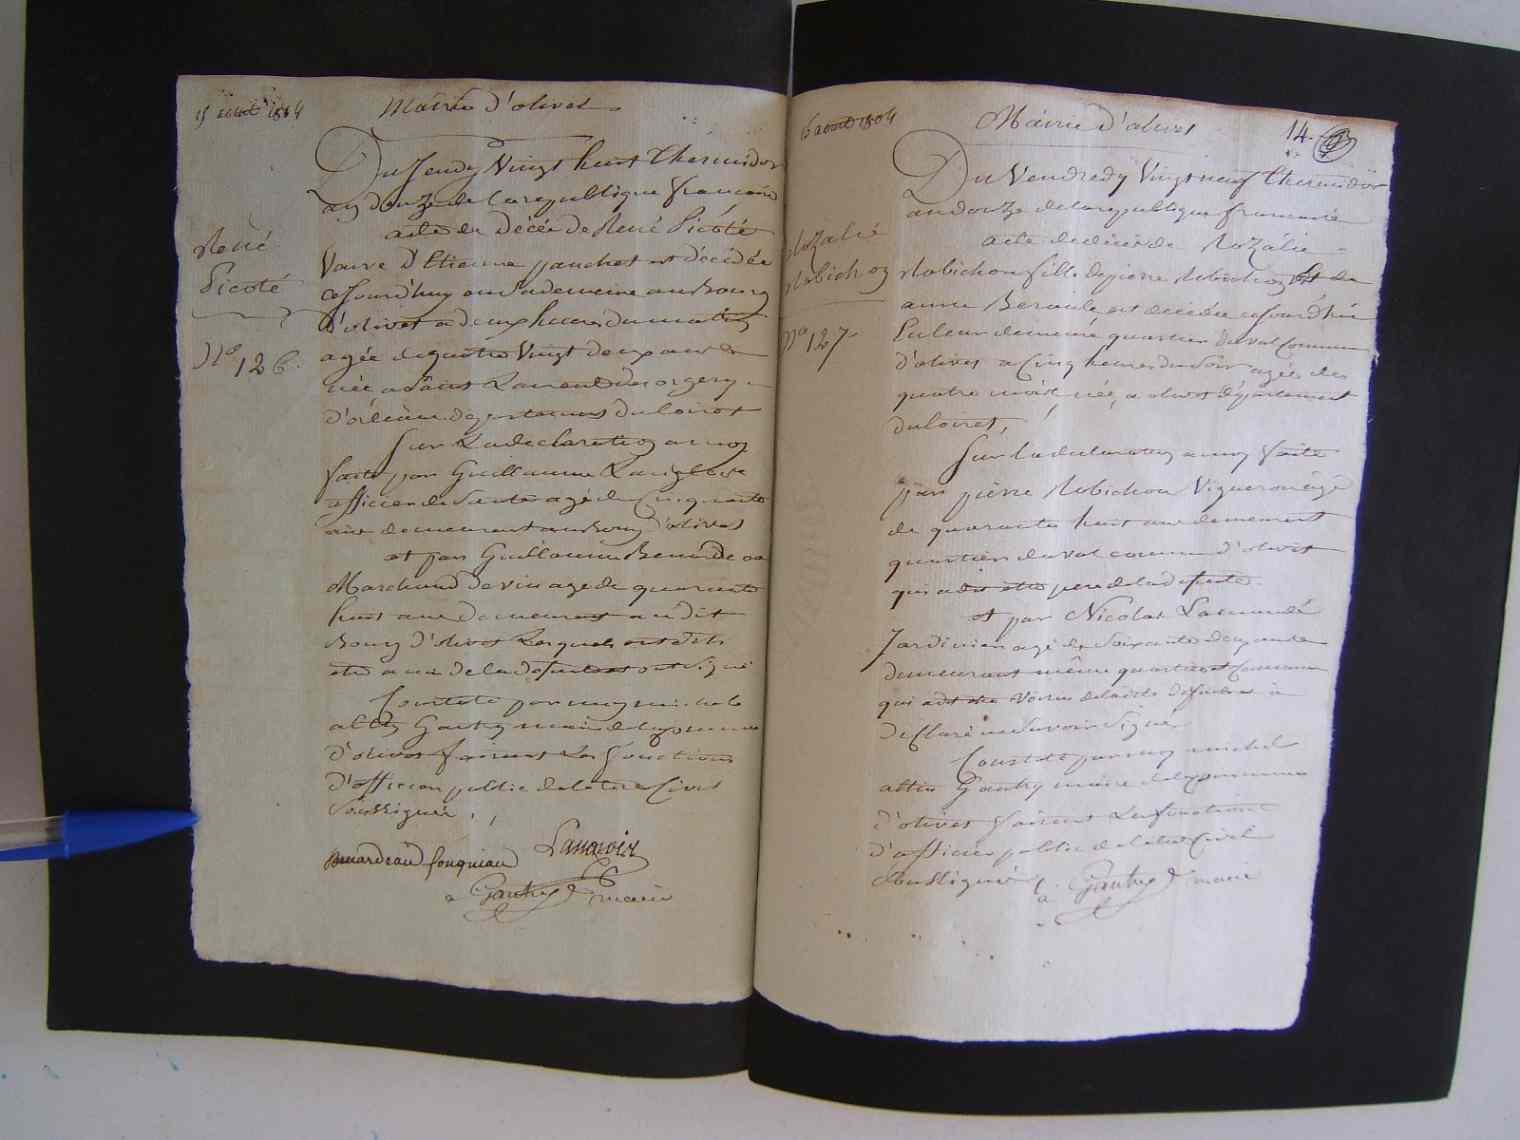 15 aout 1804
Mairie d'olivet
Du Jeudy Vingt huit thermidor
an Douze de la republique francaise
acte de Décée De René Picoté
Veuve D'Etienne pauchet est décédée
ce Jourd'huy en Sa demeure au Bourg
d'olivet a deux heures du matin
agée de quatre Vingt deux ans
née a Saint Laurent des orgery
d'orleans departement du loiret
René
Picoté
No 126.
Sur La declaration a moy
faite par Guillaume
officier de Santé agé de Cinquante
ans demeurant au Bourg d'olivet
et par Guillaume
Marchand De vin agé de quarante
huit ans demeurant au dit
Bourg d'olivet Lesquels ont dit
etre amis de la defunte et ont Signé
Constaté par moy michel
altin Gautry maire de la commune
d'olivet faisant Les fonctions
D'officier public de l'etat Civil
Soussigné
Gautry maire
16 aout 1804
Mairie d'olivet
14.
Du Vendredy Vingt neuf thermidor
an douze de la republique francaise
acte de décès de Rozalie
Robichon fille de pierre Robichon et de
anne est décédée ce Jourd'hui
en leur demeure quartier du val Commune
d'olivet a Cinq heures du Soir agée de
quatre mois née a olivet département
du loiret,
Rozalie
Robichon
No 127.
Sur la declaration a moy faite
par pierre Robichon Vigneron agé
de quarante huit ans demeurant
quartier du val commune d'olivet
qui a dit etre pere de la defunte.
et par Nicolas
Jardinier agé de Soixante deux ans
demeurant même quartier et Commune
qui a dit etre Voisin de la dite defunte a
Declaré ne Savoir Signer
Constaté par moy michel
altin Gautry maire de la commune
d'olivet faisant Les fonctions
d'officier public de l'etat Civil
Soussigné
Gautry maire